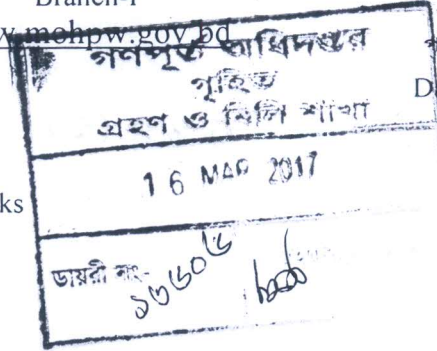 Branch-1
w.mohpw.gov.bd
গণপূর্ত অধিদপ্তর
গৃহিত
D
গ্রহণ ও বিলি শাখা
16 MAR 2017
ks
ডায়রী নং-
১৩৬০৬